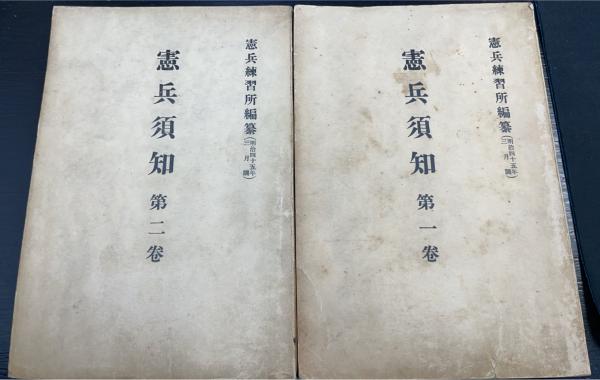 憲兵練習所編纂（明治四十五年三月調）
憲兵須知 第一卷
憲兵練習所編纂（明治四十五年三月調）
憲兵須知 第二卷